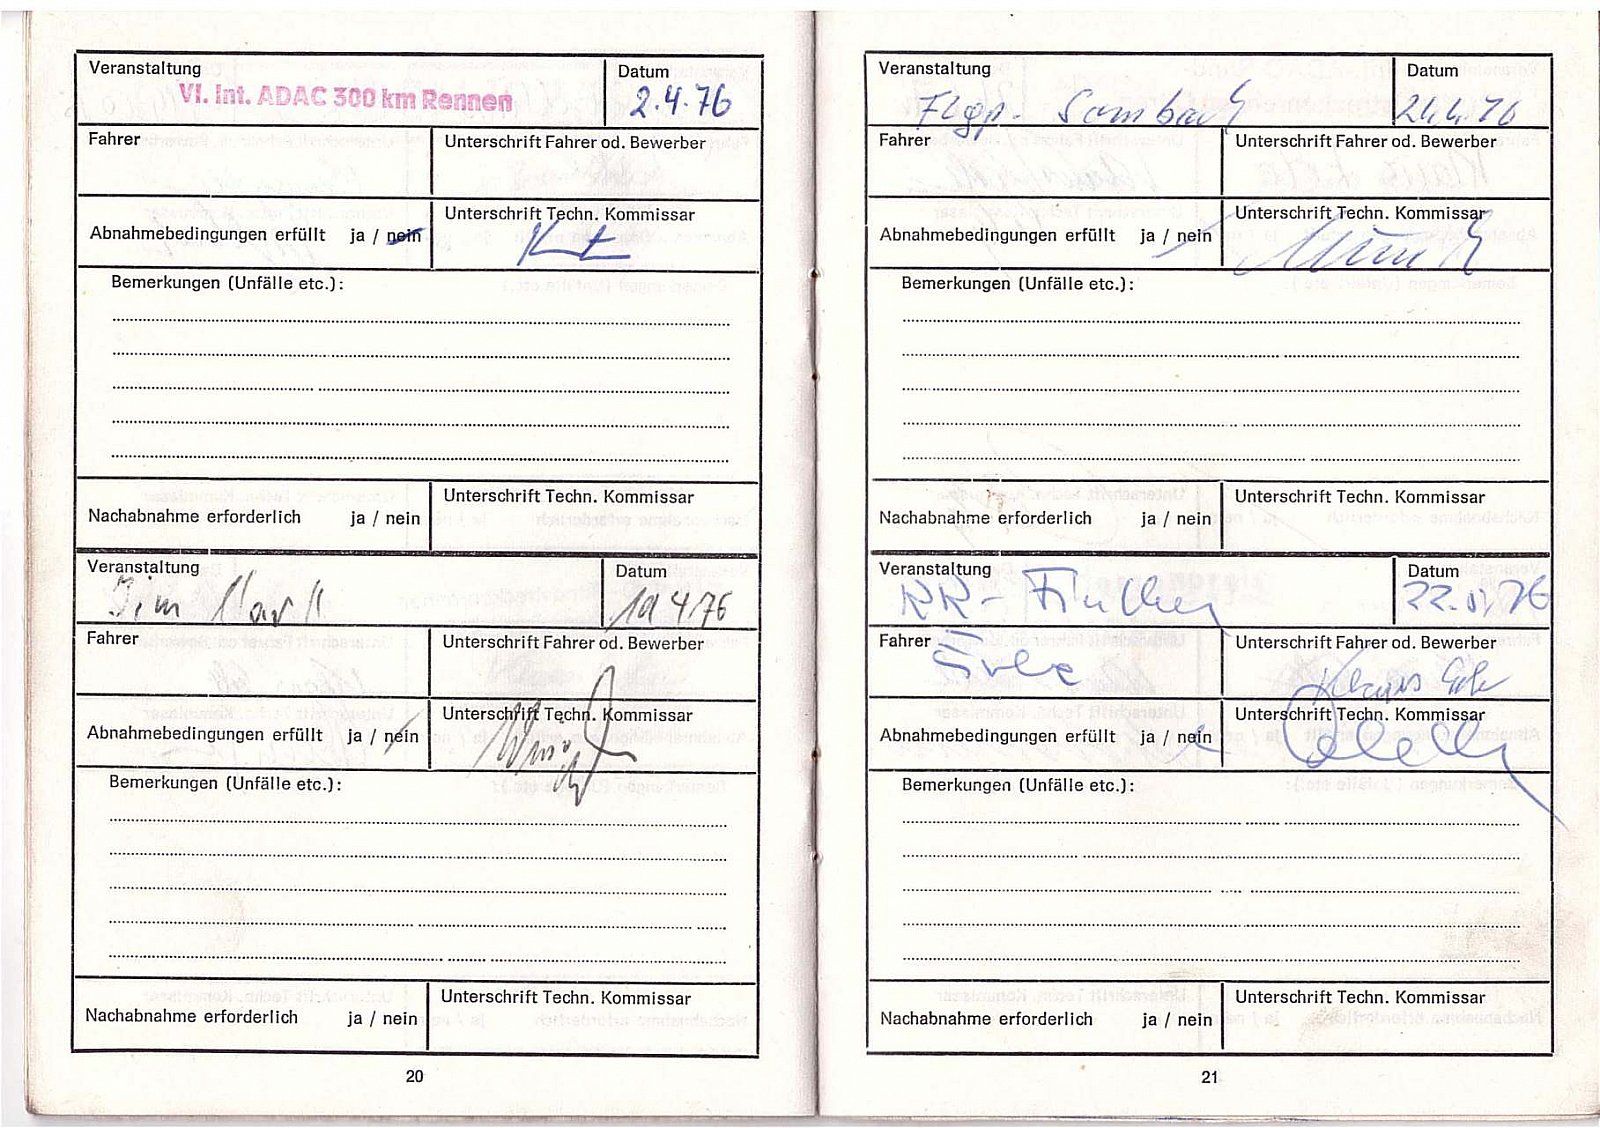 Veranstaltung
VI. Int. ADAC 300 km Rennen
Datum
2.4.76
Fahrer
Unterschrift Fahrer od. Bewerber
Abnahmebedingungen erfüllt ja / nein
Unterschrift Techn. Kommissar
Bemerkungen (Unfälle etc.):
Nachabnahme erforderlich ja / nein
Unterschrift Techn. Kommissar
Veranstaltung
Jim
Datum
4/76
Fahrer
Unterschrift Fahrer od. Bewerber
Abnahmebedingungen erfüllt ja / nein
Unterschrift Techn. Kommissar
Bemerkungen (Unfälle etc.):
Nachabnahme erforderlich ja / nein
Unterschrift Techn. Kommissar
20
Veranstaltung
Flgp. Sembach
Datum
Fahrer
Unterschrift Fahrer od. Bewerber
Abnahmebedingungen erfüllt ja / nein
Unterschrift Techn. Kommissar
Bemerkungen (Unfälle etc.):
Nachabnahme erforderlich ja / nein
Unterschrift Techn. Kommissar
Veranstaltung
RR-
Datum
Fahrer
Unterschrift Fahrer od. Bewerber
Klaus
Abnahmebedingungen erfüllt ja / nein
Unterschrift Techn. Kommissar
Bemerkungen (Unfälle etc.):
Nachabnahme erforderlich ja / nein
Unterschrift Techn. Kommissar
21